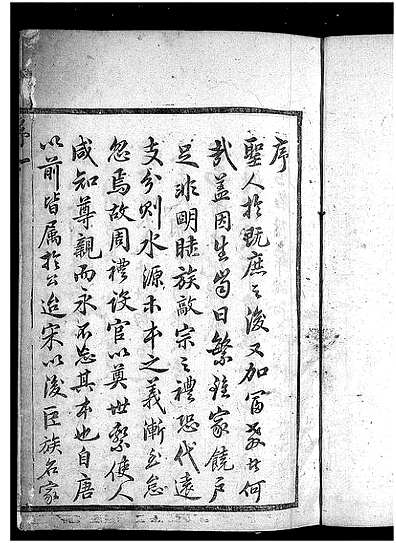 序
聖人於既庶之後又加富教者何
哉蓋因生齒日繁雖家饒戶
足非明睦族敵宗之禮恐代遠
支分則水源木本之義漸至怠
忽焉故周禮設官以奠世繫使人
咸知尊親而永不忘其本也自唐
以前皆属於公迨宋以後臣族名家
序 一